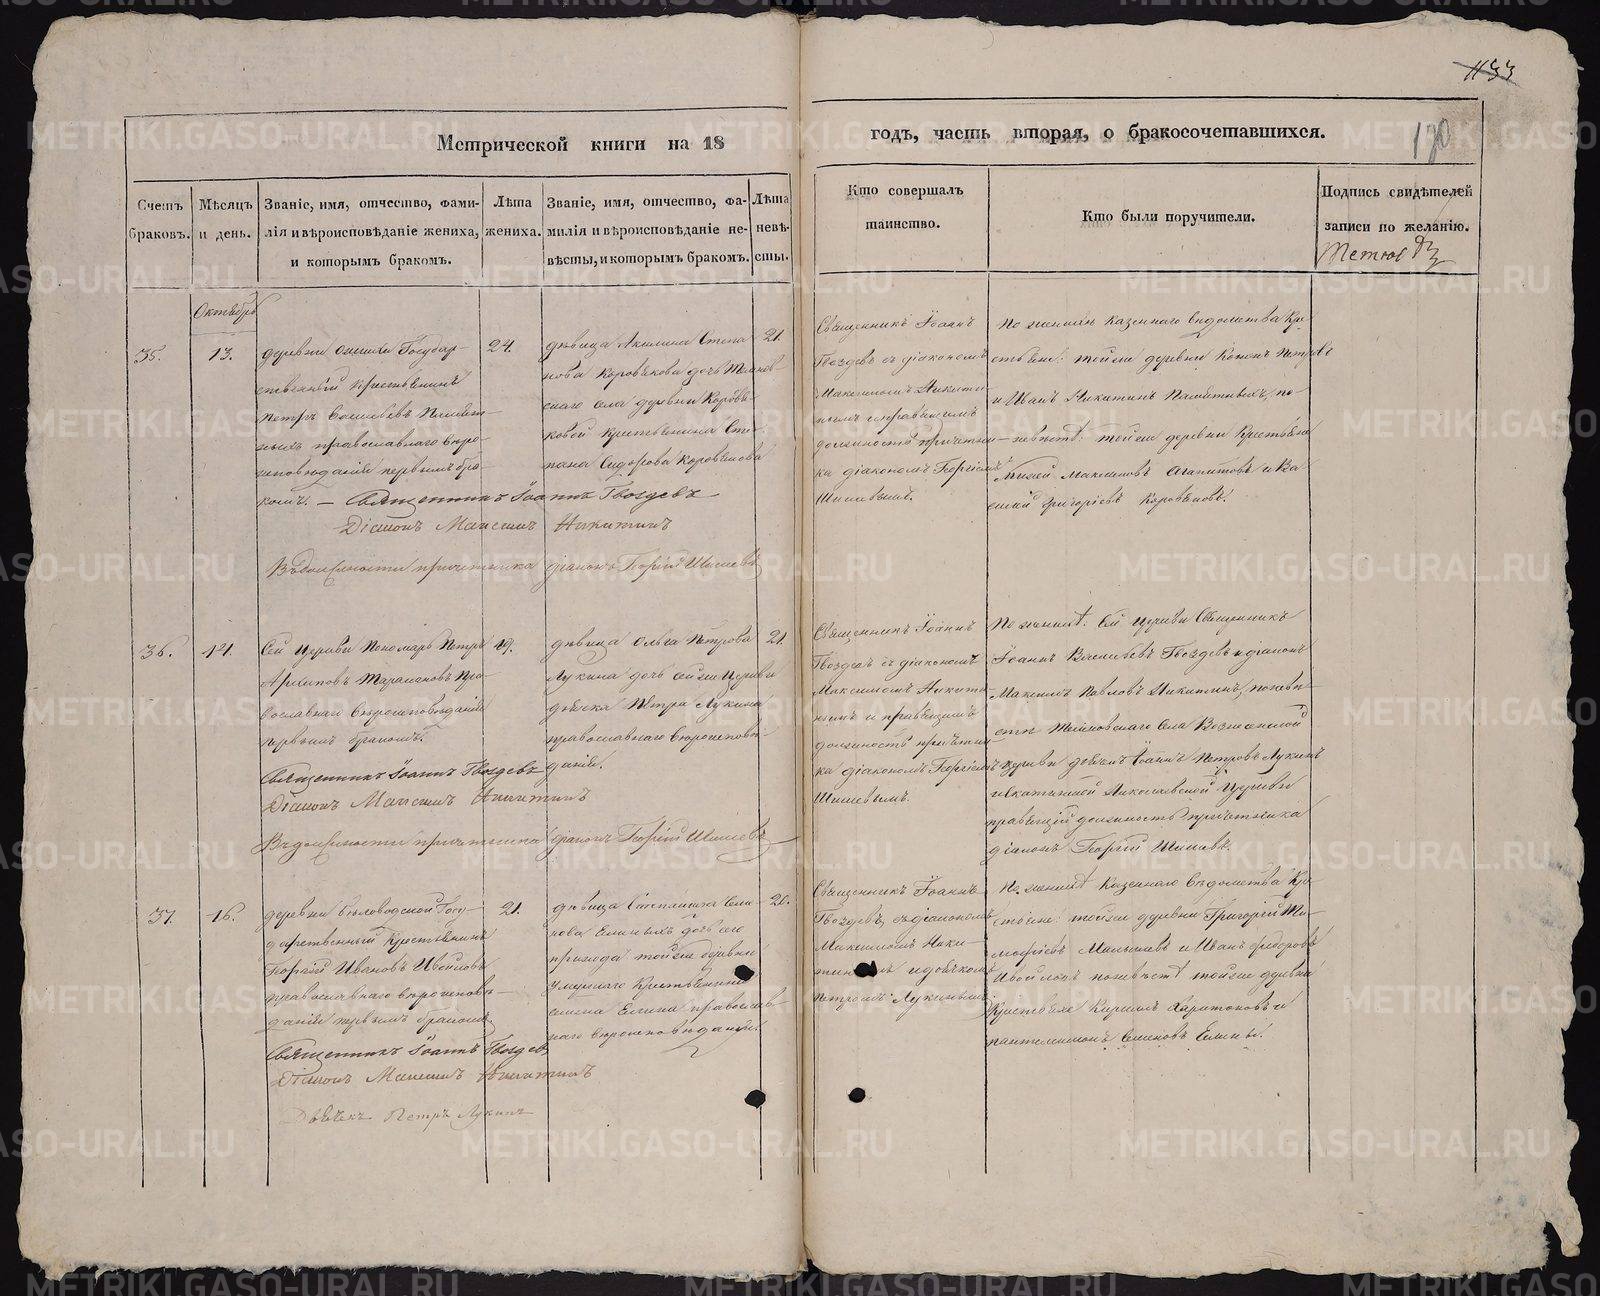 1133
Метрической книги на 18 годъ, часть вторая, о бракосочетавшихся.
180
Счетъ браковъ.
Мѣсяцъ и день.
Званіе, имя, отчество, фами-
лія и вѣроисповѣданіе жениха,
и которымъ бракомъ.
Лѣта
жениха.
Званіе, имя, отчество, фа-
милія и вѣроисповѣданіе не-
вѣсты, и которымъ бракомъ.
Лѣта
невѣ-
сты.
Кто совершалъ
таинство.
Кто были поручители.
Подпись свидѣтелей
записи по желанію.
Октябрь
35.
13.
деревни Государ-
ственный Крестьянинъ
Петръ Васильевъ
православнаго вѣро-
исповѣданія первымъ бра-
комъ. — Священникъ Іоаннъ Гвоздевъ
Діаконъ Максимъ Никитинъ
Въ должности причетника діаконъ Георгій Шишевъ
24.
дѣвица Акилина Степа
нова Коровякова дочь
скаго села деревни Коровя-
ковой крестьянина Сте-
пана Сидорова Коровякова
21.
Священникъ Іоаннъ
Гвоздевъ съ діакономъ
Максимомъ Никити-
нымъ и правящимъ
должность причетни-
ка діакономъ Георгіемъ
Шишевымъ.
По женихѣ казеннаго вѣдомства Кре-
стьяне: тойже деревни Кононъ Петровъ
и Иванъ Никитинъ по
невѣстѣ: тойже деревни Крестьяне
Максимовъ Агапитовъ и Ва
силій Григорьевъ Коровяковъ.
36.
14.
Сей церкви Пономарь Петръ
Архиповъ Пра-
вославнаго вѣроисповѣданія
первымъ бракомъ.
Священникъ Іоаннъ Гвоздевъ
Діаконъ Максимъ Никитинъ
Въ должности причетника діаконъ Георгій Шишевъ
19.
дѣвица Ольга Петрова
Лукина дочь сей же церкви
дьячка Петра Лукина
православнаго вѣроисповѣ-
данія.
21.
Священникъ Іоаннъ
Гвоздевъ съ діакономъ
Максимомъ Никити-
нымъ и правящимъ
должность причетни-
ка діакономъ Георгіемъ
Шишевымъ.
По женихѣ: Сей церкви Священникъ
Іоаннъ Васильевъ Гвоздевъ и діаконъ
Максимъ Павловъ Никитинъ, по невѣ-
стѣ села Вознесенской
церкви дьячекъ Іоаннъ Петровъ Лукинъ
Николаевской церкви
правящій должность причетника
діаконъ Георгій Шишевъ.
37.
16.
деревни Бѣловодской Госу-
дарственный Крестьянинъ
Георгій Ивановъ
православнаго вѣроисповѣ-
данія первымъ бракомъ.
Священникъ Іоаннъ Гвоздевъ
Діаконъ Максимъ Никитинъ
Дьячекъ Петръ Лукинъ
21.
дѣвица Степанида Сем-
нова Елиныхъ дочь сего
прихода тойже деревни
умершаго Крестьянина
Елина православ-
наго вѣроисповѣданія.
20.
Священникъ Іоаннъ
Гвоздевъ, съ діакономъ
Максимомъ Ники-
тинымъ и дьячкомъ
Петромъ Лукинымъ
По женихѣ Казеннаго вѣдомства Кре-
стьяне: тойже деревни Григорій Ти-
мофѣевъ и Иванъ Федоровъ
по невѣстѣ тойже деревни
Крестьяне Кириллъ Харитоновъ и
Пантелеимонъ Семеновъ Елины.
METRIKI.GASO-URAL.RU